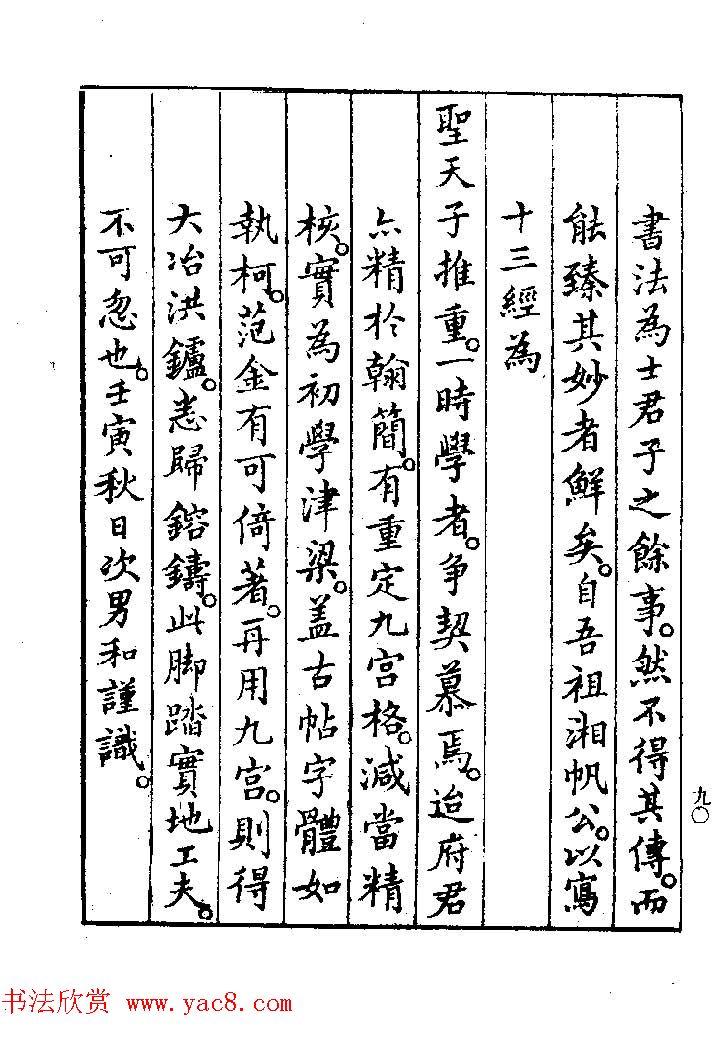 書法為士君子之餘事。然不得其傳。而
能臻其妙者鮮矣。自吾祖湘帆公。以寫
十三經為
聖天子推重。一時學者。争契慕焉。迨府君
亦精於翰簡。有重定九宮格。減當精
核。實為初學津梁。盖古帖字體如
執柯。范金有可倚著。再用九宮。則得
大冶洪鑪。悉歸鎔鑄。此脚踏實地工夫。
不可忽也。壬寅秋日次男和謹識。
九〇
书法欣赏 www.yac8.com